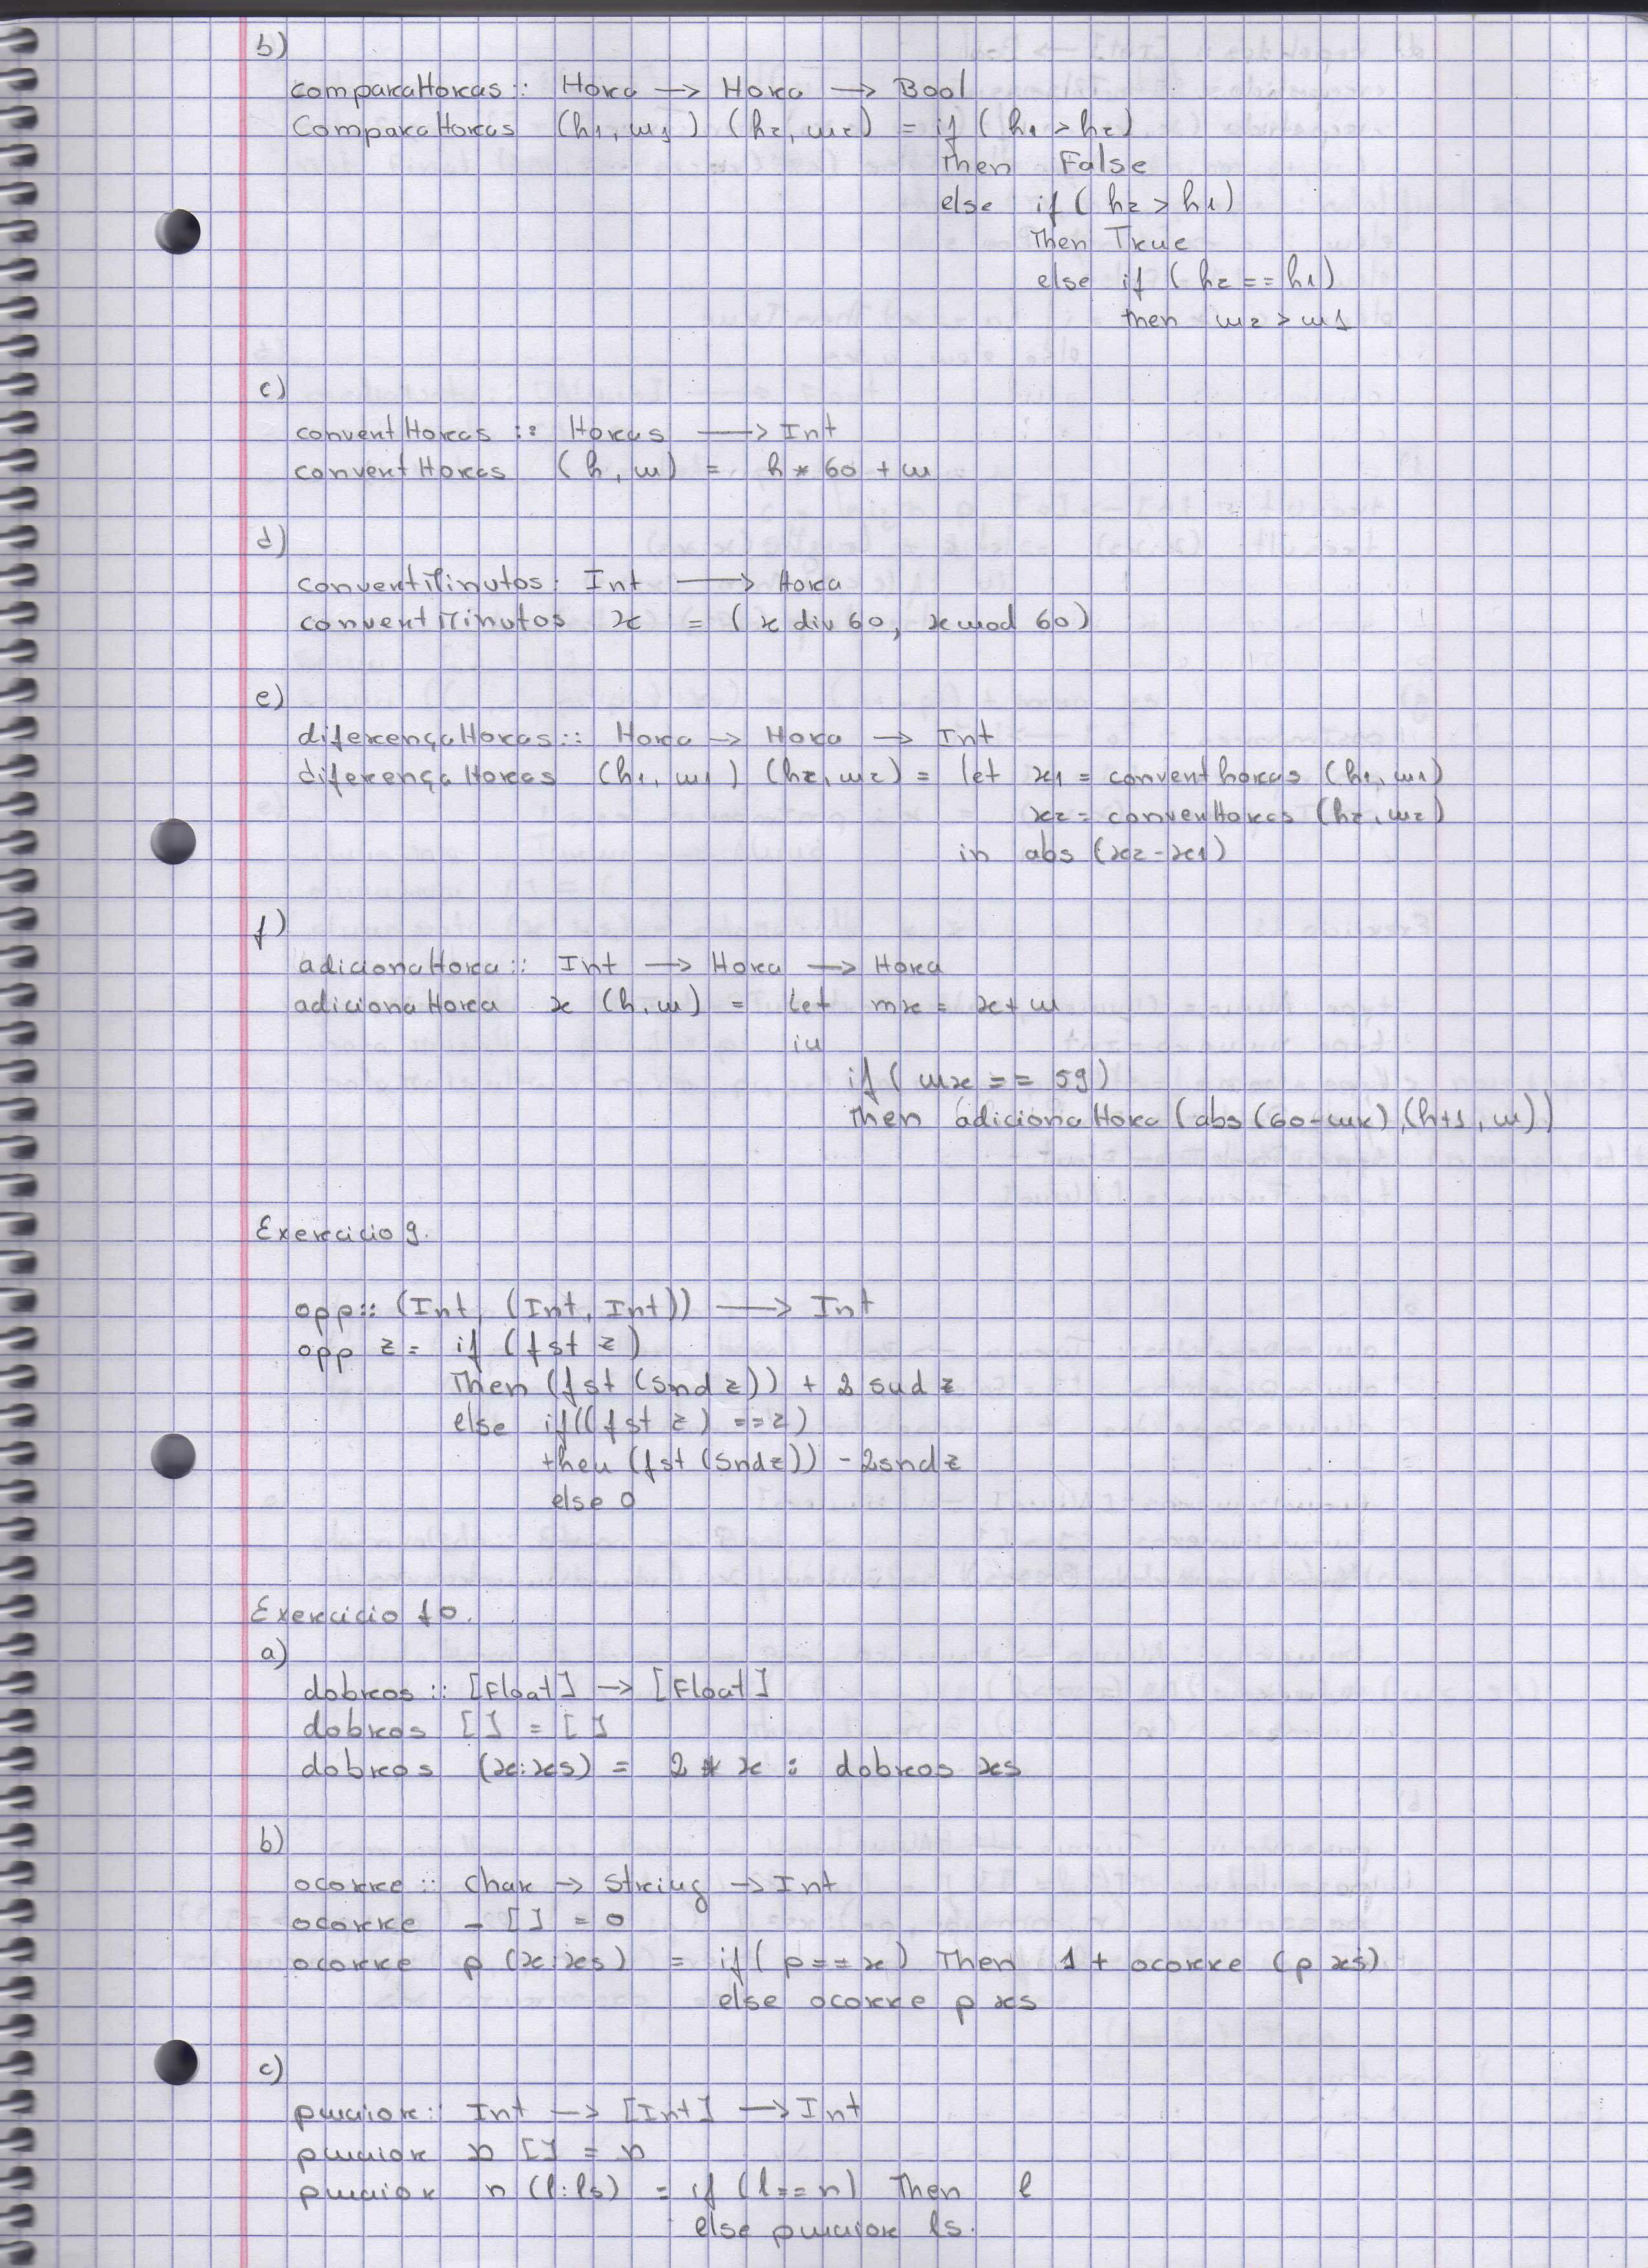 b)
comparaHoras :: Hora -> Hora -> Bool
ComparaHoras (h1, m1) (h2, m2) = if (h1 > h2)
Then False
else if ( h2 > h1)
Then True
else if ( h2 == h1)
then m2 > m1
c)
convertHoras :: Horas -> Int
convertHoras (h, m) = h * 60 + m
d)
convertMinutos : Int -> Hora
convertMinutos x = ( x div 60, x mod 60)
e)
diferençaHoras :: Hora -> Hora -> Int
diferençaHoras (h1, m1) (h2, m2) = let x1 = converthoras (h1, m1)
x2 = converHoras (h2, m2)
in abs (x2 - x1)
f)
adicionaHora :: Int -> Hora -> Hora
adicionaHora x (h, m) = let mx = x + m
in
if ( mx == 59)
Then adicionaHora (abs (60 - mx) , (h+1, m))
Exercicio 9.
opp :: (Int, (Int, Int)) -> Int
opp z = if (fst z)
Then (fst (snd z)) + 2 snd z
else if((fst z) == 2)
then (fst (snd z)) - 2 snd z
else 0
Exercicio 10.
a)
dobros :: [Float] -> [Float]
dobros [] = []
dobros (x:xs) = 2 * x : dobros xs
b)
ocorre :: Char -> String -> Int
ocorre _ [] = 0
ocorre p (x:xs) = if ( p == x) Then 1 + ocorre (p xs)
else ocorre p xs
c)
pmaior :: Int -> [Int] -> Int
pmaior n [] = n
pmaior n (l:ls) = if (l == n) Then l
else pmaior ls.